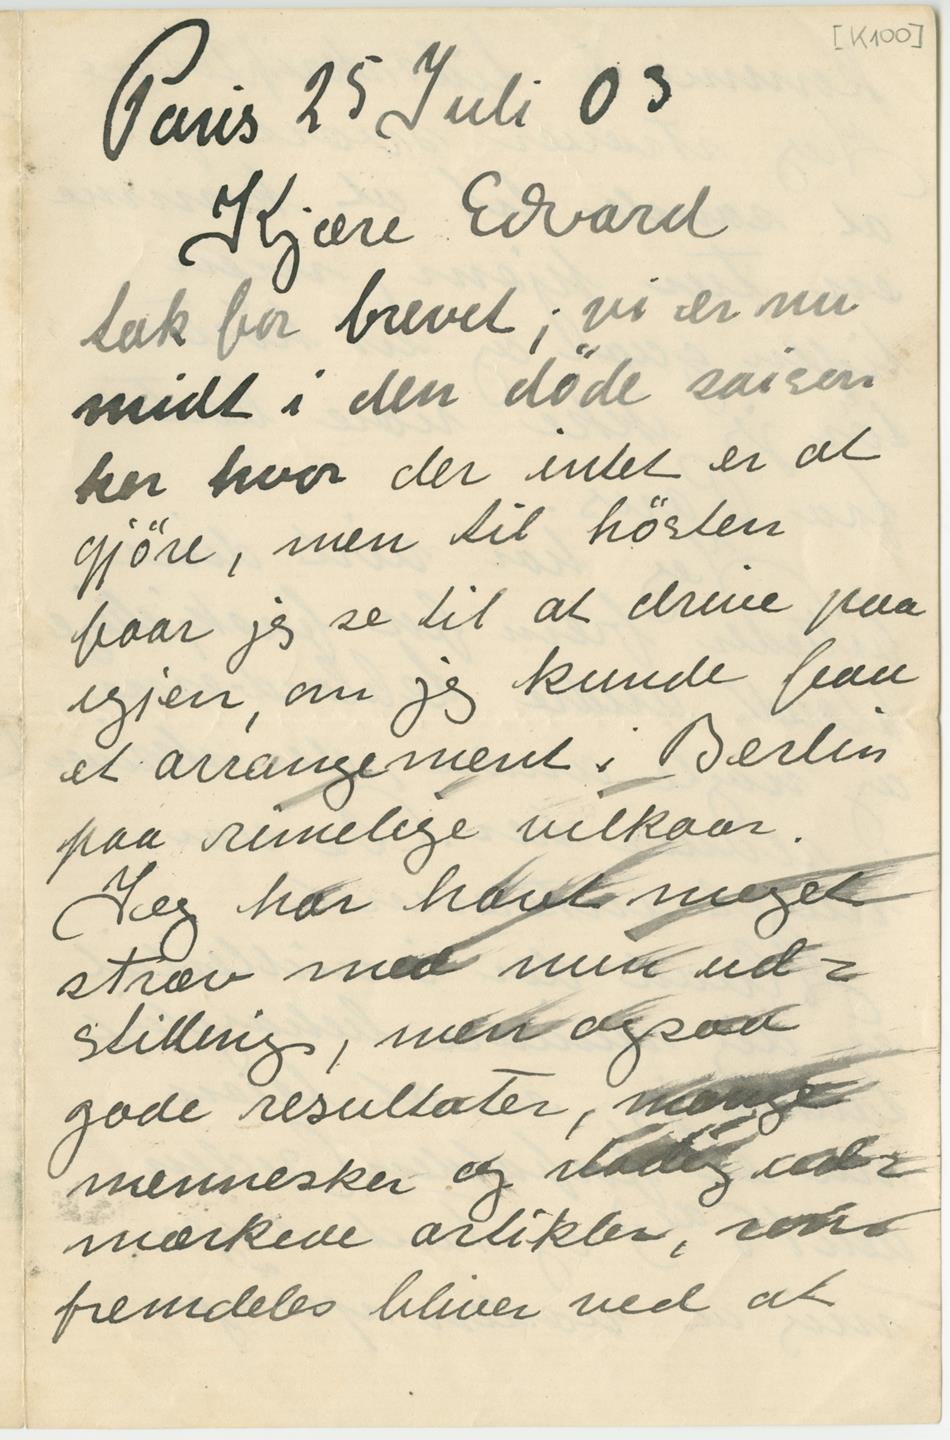 [K100]
Paris 25 Juli 03
Kjære Edvard
tak for brevet; vi er nu
midt i den döde saison
her hvor der intet er at
gjöre, men til hösten
faar jeg se til at drive paa
igjen, om jeg kunde faa
et arrangement i Berlin
paa rimelige vilkaar.
Jeg har havt meget
stræv med min ud=
stilling, men ogsaa
gode resultater, mange
mennesker og stadig ud=
mærkede artikler, som
fremdeles bliver ved at